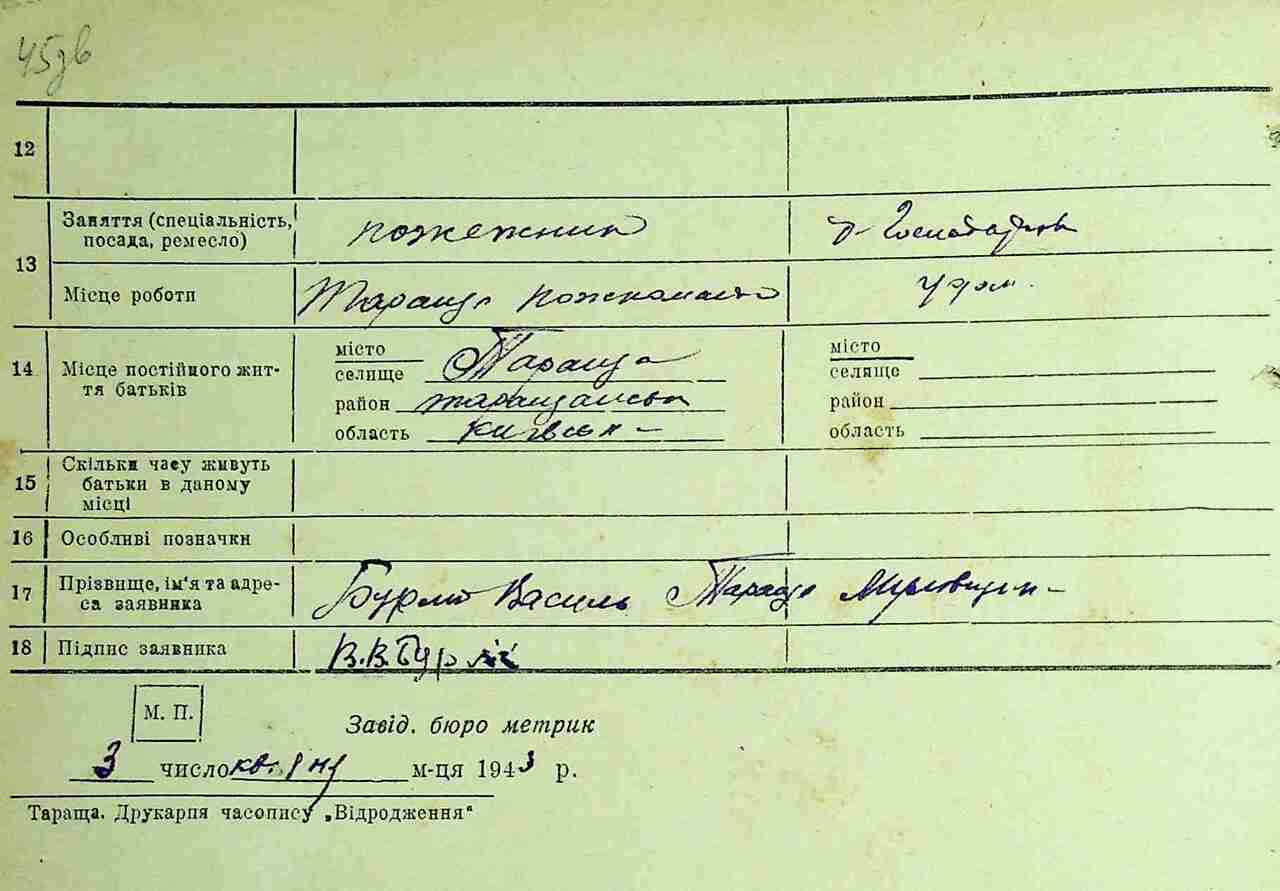 45зв
12
13 Заняття (спеціальність, посада, ремесло) пожежник д-господарков
Місце роботи Тараща пожкоманда у дом.
14 Місце постійного жит-
тя батьків
місто
селище Тараща
район таращанськ
область київськ-
місто
селище
район
область
15 Скільки часу живуть
батьки в даному
місці
16 Особливі позначки
17 Прізвище, ім'я та адре-
са заявника Бурлій Василь Тараща
18 Підпис заявника В.В.Бурлій
М. П.
Завід. бюро метрик
3 число квітня м-ця 1943 р.
Тараща. Друкарня часопису „Відродження"